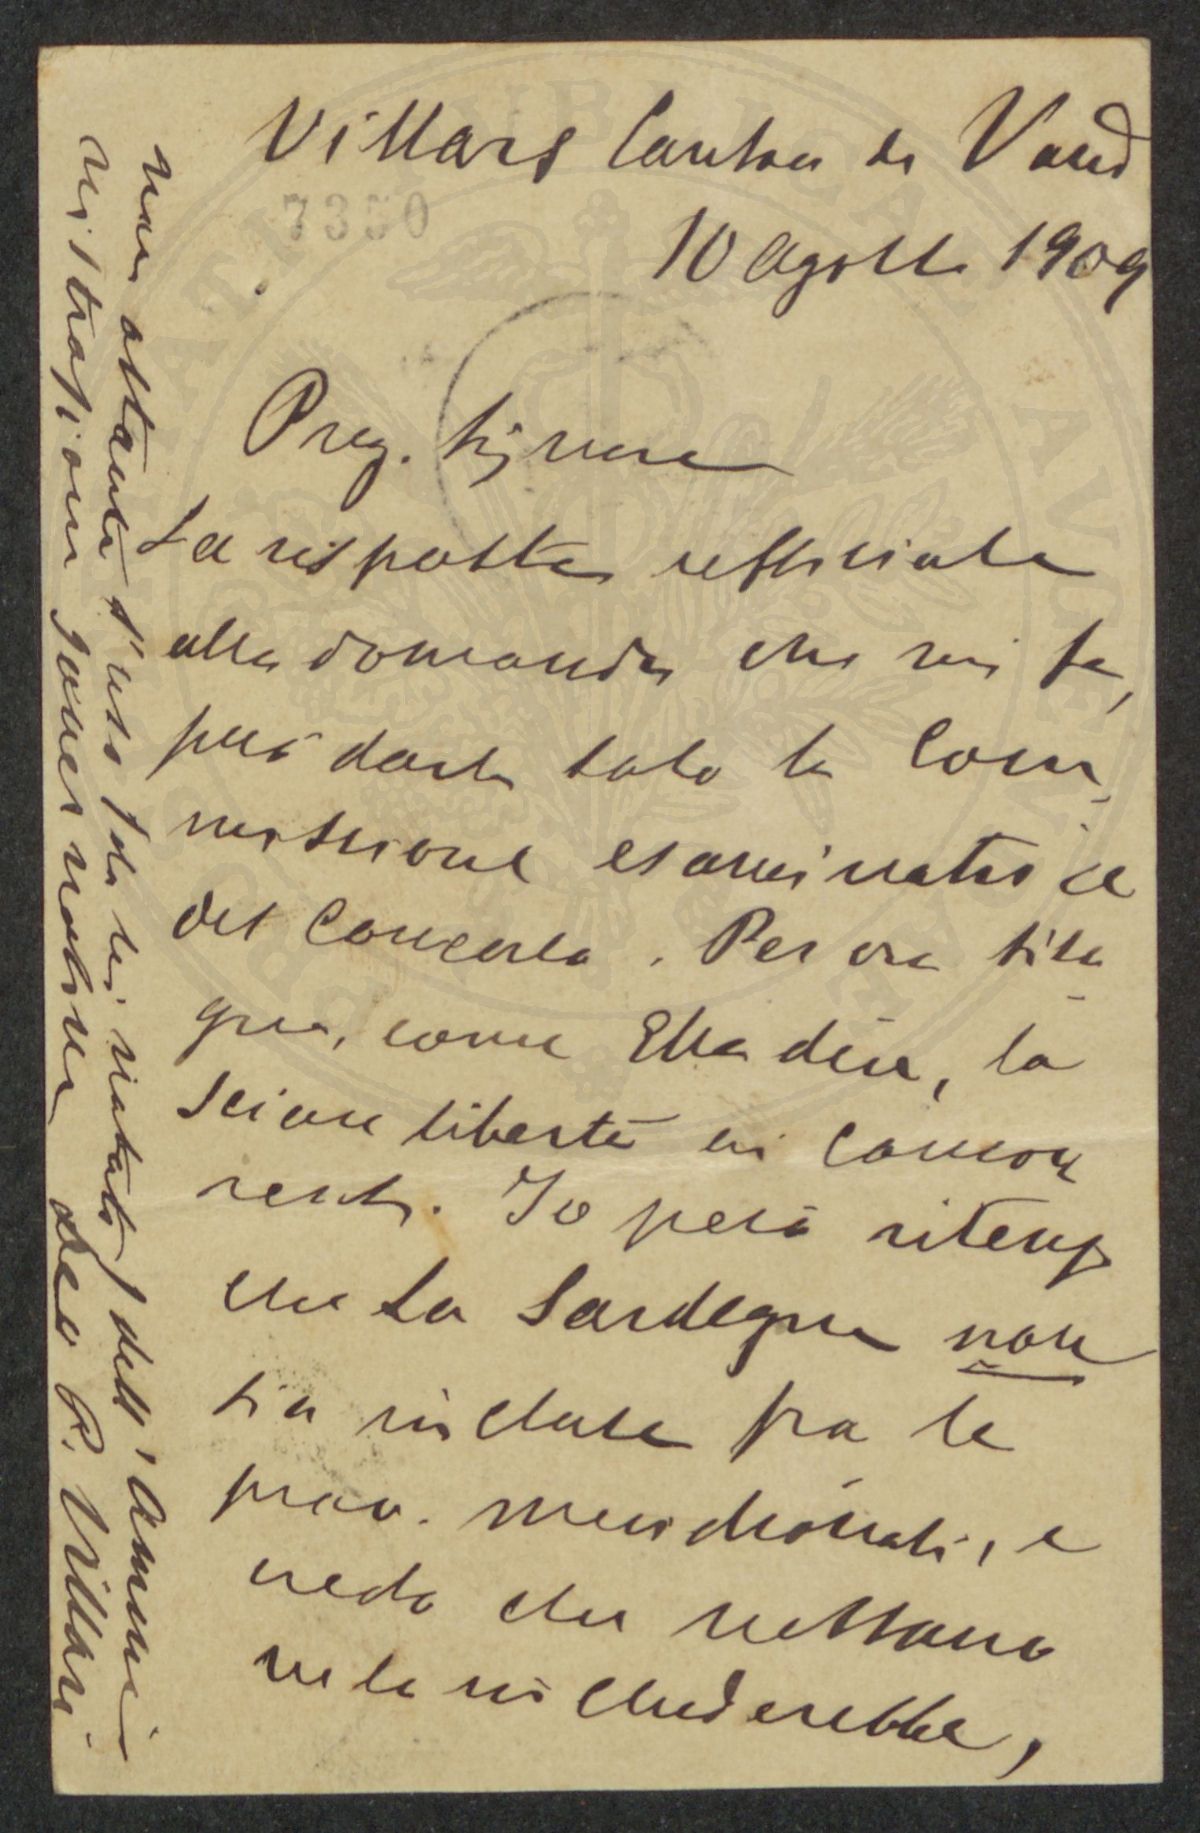 Villars Canton de Vaud
7350
10 Agosto 1909
Preg. Signore
La risposta ufficiale
alla domanda che mi fa,
può darla solo la Com-
missione esaminatrice
del Concorso. Per ora biso-
gna, come Ella dice, la-
sciare libertà ai concor-
renti. Io però ritengo
che la Sardegna non
sia inclusa fra le
prov. meridionali, e
credo che nessuno
ve la includerebbe,
non ostante l'uso da lei notato dell'Ammi-
nistrazione governativa. Suo P. Villari.